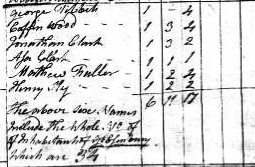 George Tibbets 1 - 4
Coffin Wood 1 3 4
Jonathan Clark 1 3 2
Asa Clark 1 1 1
Mathew Fuller 1 2 4
Henry 1 2 2
6 11 17
The above six Names
Include the whole No of
Inhabitants of
Which are 34